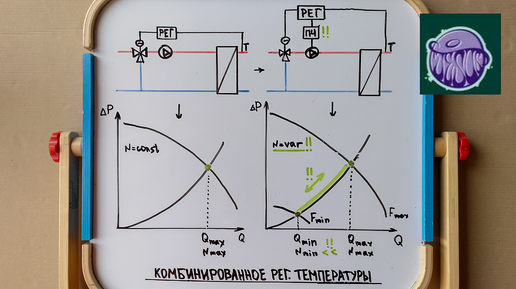 РЕГ
T
РЕГ
ПЧ !!
T
ΔP
N=const
Q
Qmax
Nmax
ΔP
N=var !!
!!
Fmin
Fmax
Q
Qmin !! Qmax
Nmin << Nmax
КОМБИНИРОВАННОЕ РЕГ. ТЕМПЕРАТУРЫ